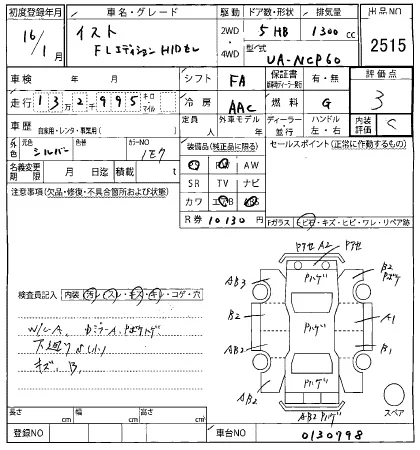 初度登録年月 車名・グレード 駆動 ドア数・形状 排気量 出品NO
16/1月 イスト 2WD 5 HB 1300cc
FLエディション HIDセレ 4WD 型式 UA-NCP60 2515
車検 年 月 シフト FA 保証書 有・無 評価点
走行 13万2千995 キロ・マイル 冷房 AAC 燃料 G 3
車歴 自家用・レンタ・事業用( ) 定員 人 外車モデル 年 ディーラー・並行 ハンドル 左・右 内装評価 C
外色 元色 シルバー 色替 カラーNO 1E7
装備品(純正品に限る) セールスポイント(正常に作動するもの)
名義変更期限 月 日迄 積載 t
PW AW
注意事項(欠品・修復・不具合箇所および状態)
SR TV ナビ
カワ
R券 10130円
Fガラス ヒビ・キズ・ヒビ・ワレ・リペア跡
検査員記入 内装(汚レ・スレ・キズ・キレ・コゲ・穴
W/G A
下廻りサビ小
キズ、B1
Pアセ A2 Pアセ
AB3 Pハゲ B2 Pボケ
B2 Pハゲ A1
AB2 B1
AB2 Pハゲ
AB2 Pハゲ
スペア
長さ cm 幅 cm 高さ cm
登録NO 車台NO 0130798